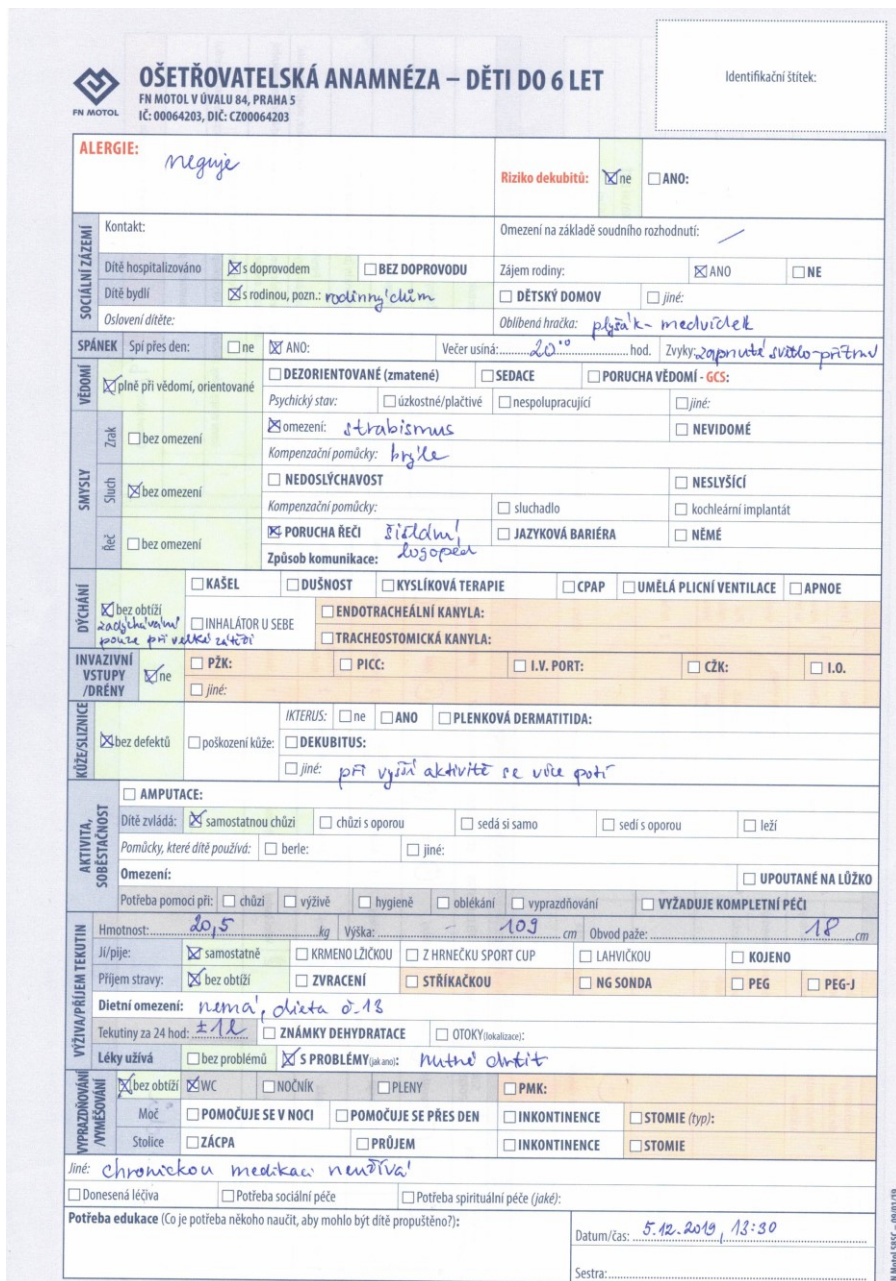 OŠETŘOVATELSKÁ ANAMNÉZA – DĚTI DO 6 LET
FN MOTOL V ÚVALU 84, PRAHA 5
IČ: 00064203, DIČ: CZ00064203
FN MOTOL
Identifikační štítek:
ALERGIE: neguje
Riziko dekubitů: ne ANO:
SOCIÁLNÍ ZÁZEMÍ
Kontakt: Omezení na základě soudního rozhodnutí:
Dítě hospitalizováno s doprovodem BEZ DOPROVODU Zájem rodiny: ANO NE
Dítě bydlí s rodinou, pozn.: rodinný dům DĚTSKÝ DOMOV jiné:
Oslovení dítěte: Oblíbená hračka: plyšák - medvídek
SPÁNEK Spí přes den: ne ANO: Večer usíná: 20°° hod. Zvyky: zapnuté světlo
VĚDOMÍ
plně při vědomí, orientované DEZORIENTOVANÉ (zmatené) SEDACE PORUCHA VĚDOMÍ - GCS:
Psychický stav: úzkostné/plačtivé nespolupracující jiné:
SMYSLY
Zrak bez omezení omezení: strabismus NEVIDOMÉ
Kompenzační pomůcky: brýle
Sluch bez omezení NEDOSLÝCHAVOST NESLYŠÍCÍ
Kompenzační pomůcky: sluchadlo kochleární implantát
Řeč bez omezení PORUCHA ŘEČI JAZYKOVÁ BARIÉRA NĚMÉ
Způsob komunikace: logoped
DÝCHÁNÍ
bez obtíží KAŠEL DUŠNOST KYSLÍKOVÁ TERAPIE CPAP UMĚLÁ PLICNÍ VENTILACE APNOE
zadýchávání
pouze při velké zátěži
INHALÁTOR U SEBE ENDOTRACHEÁLNÍ KANYLA:
TRACHEOSTOMICKÁ KANYLA:
INVAZIVNÍ VSTUPY /DRÉNY
ne PŽK: PICC: I.V. PORT: CŽK: I.O.
jiné:
KŮŽE/SLIZNICE
IKTERUS: ne ANO PLENKOVÁ DERMATITIDA:
bez defektů poškození kůže: DEKUBITUS:
jiné: při vyšší aktivitě se více potí
AKTIVITA, SOBĚSTAČNOST
AMPUTACE:
Dítě zvládá: samostatnou chůzi chůzi s oporou sedá si samo sedí s oporou leží
Pomůcky, které dítě používá: berle: jiné:
Omezení: UPOUTANÉ NA LŮŽKO
Potřeba pomoci při: chůzi výživě hygieně oblékání vyprazdňování VYŽADUJE KOMPLETNÍ PÉČI
VÝŽIVA/PŘÍJEM TEKUTIN
Hmotnost: 20,5 kg Výška: 109 cm Obvod paže: 18 cm
Jí/pije: samostatně KRMENO LŽIČKOU Z HRNEČKU SPORT CUP LAHVIČKOU KOJENO
Příjem stravy: bez obtíží ZVRACENÍ STŘÍKAČKOU NG SONDA PEG PEG-J
Dietní omezení: nemá, dieta č. 13
Tekutiny za 24 hod: ± 1l ZNÁMKY DEHYDRATACE OTOKY (lokalizace):
Léky užívá bez problémů S PROBLÉMY (jak ano): nutné drtit
VYPRAZDŇOVÁNÍ /VYMĚŠOVÁNÍ
bez obtíží WC NOČNÍK PLENY PMK:
Moč POMOČUJE SE V NOCI POMOČUJE SE PŘES DEN INKONTINENCE STOMIE (typ):
Stolice ZÁCPA PRŮJEM INKONTINENCE STOMIE
Jiné: chronickou medikaci neužívá
Donesená léčiva Potřeba sociální péče Potřeba spirituální péče (jaké):
Potřeba edukace (Co je potřeba někoho naučit, aby mohlo být dítě propuštěno?):
Datum/čas: 5.12.2019, 13:30
Sestra: